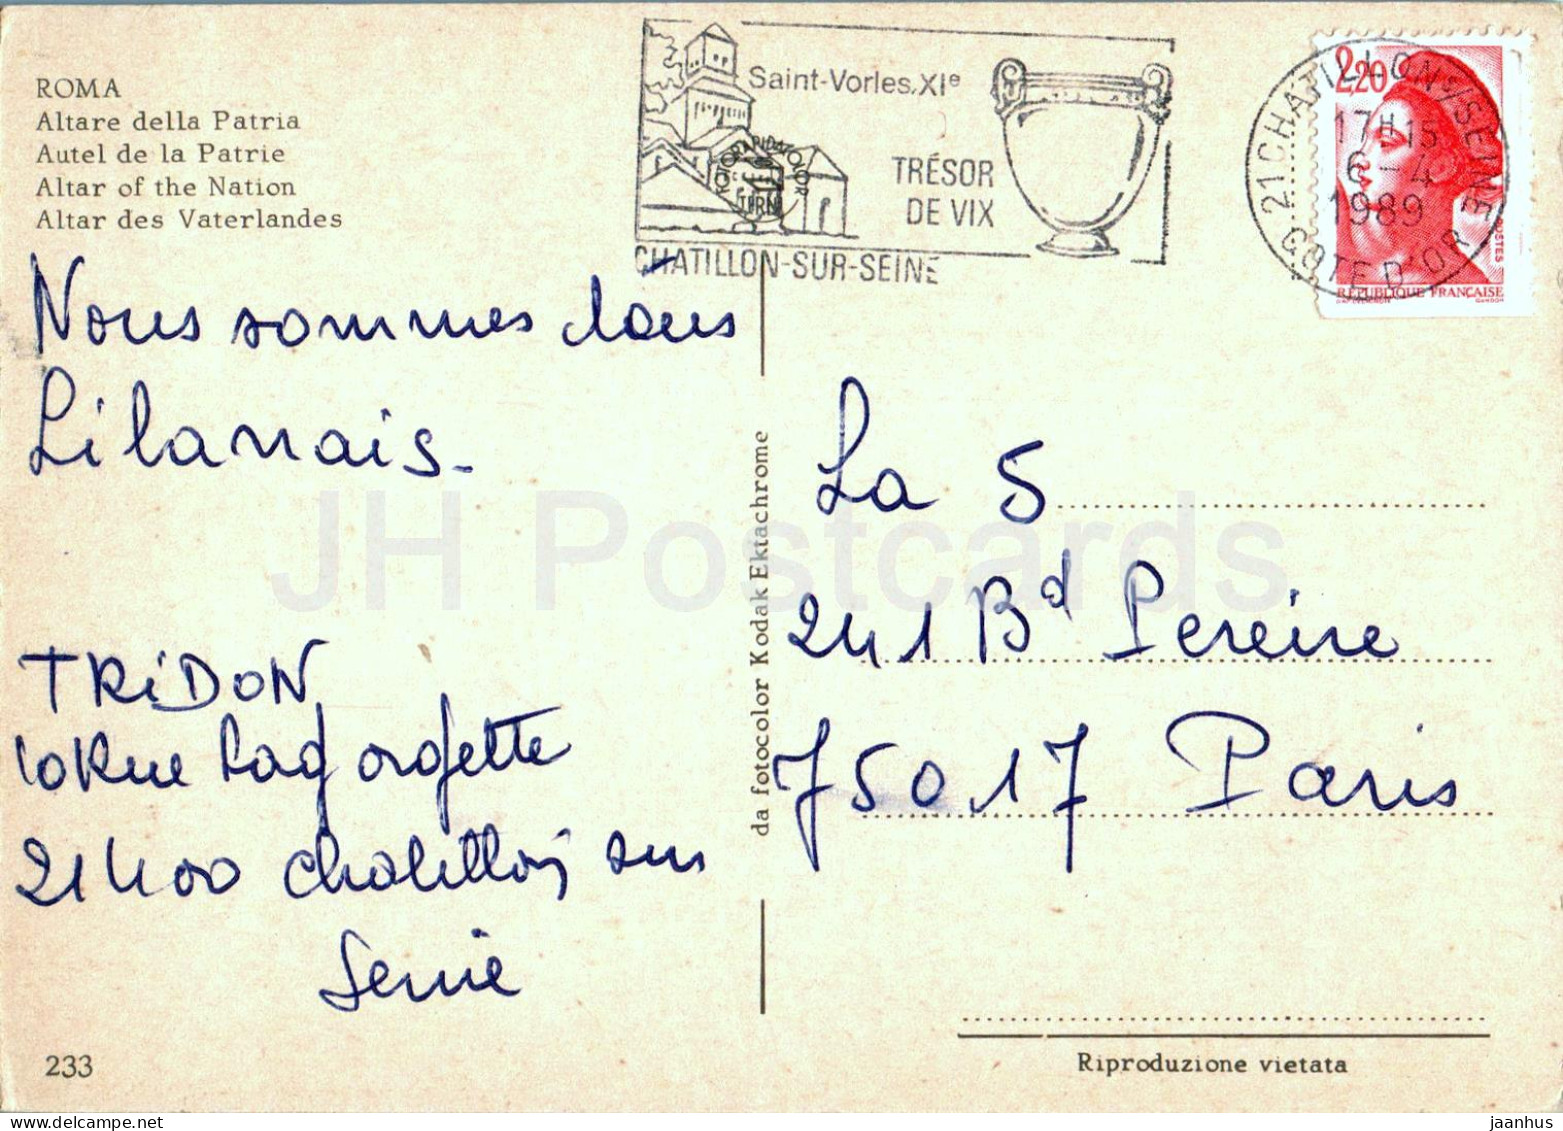 ROMA
Altare della Patria
Autel de la Patrie
Altar of the Nation
Altar des Vaterlandes
Saint-Vorles.XIe
TRÉSOR
DE VIX
CHATILLON-SUR-SEINE
FOTORAPIDACOLOR
TERNI
21 CHATILLON S/SEINE
17H15
6-4
1989
COTE D'OR
2,20
POSTES
RÉPUBLIQUE FRANÇAISE
Nous sommes dans
Lilanais.
TRiDON
Rue Lag orgette
21400 Chatillon sur
Seine
La 5
241 Bd Pereire
75017 Paris
da fotocolor Kodak Ektachrome
233
Riproduzione vietata
JH Postcards
jaanhus